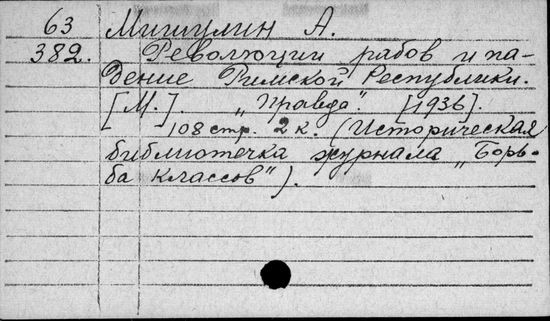 63 Мишулин А.
382. Революции рабов и па-
дение Римской Республики.
[М.]. „Правда". [1936].
108 стр. 2 к. (Историческая
библиотечка журнала „Борь-
ба классов").